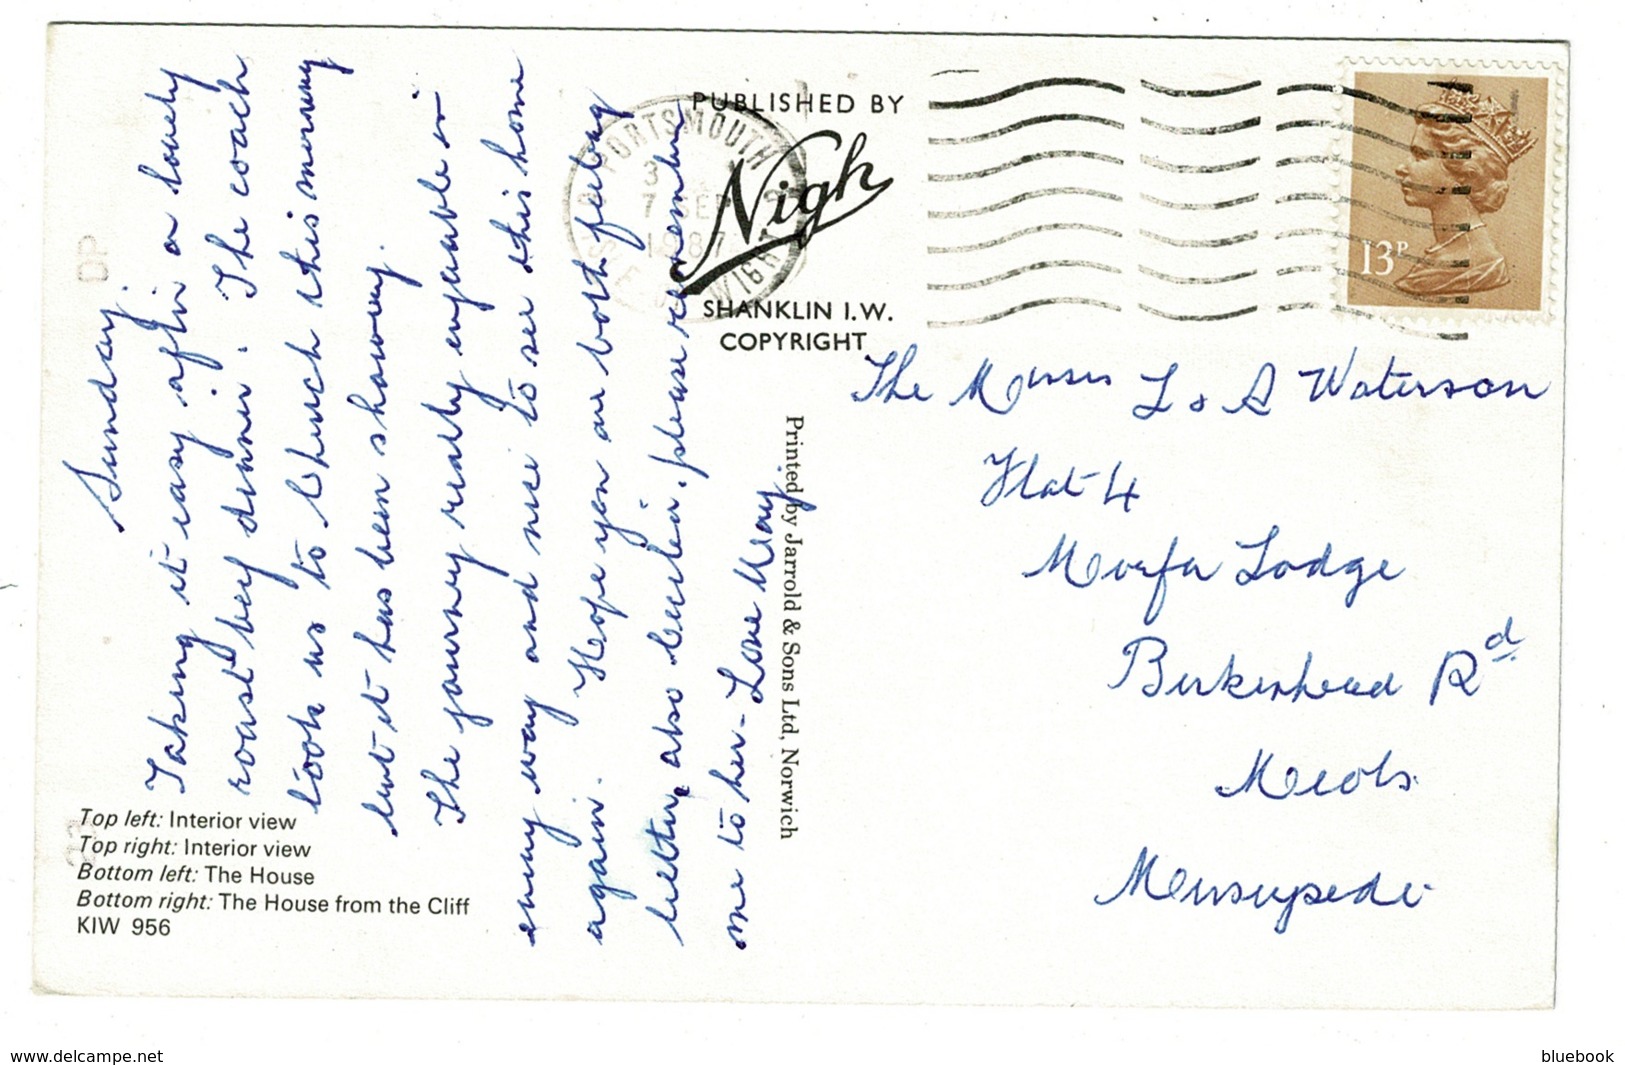 Sunday.
Taking it easy after a lovely
roast beef dinner. The coach
took us to Church this morning
but it has been showery.
The journey really enjoyable in
every way and nice to see this home
again. Hope you are both feeling
better, also Cecelia, please remember
me to her - Love May.
Top left: Interior view
Top right: Interior view
Bottom left: The House
Bottom right: The House from the Cliff
KIW 956
PUBLISHED BY
Nigh
SHANKLIN I.W.
COPYRIGHT
Printed by Jarrold & Sons Ltd, Norwich
PORTSMOUTH
7 SEP
1987
ISLE OF WIGHT
13P
The Misses L & A Waterson
Flat 4
Morfa Lodge
Birkenhead Rd
Meols
Merseyside
DP
www.delcampe.net
bluebook